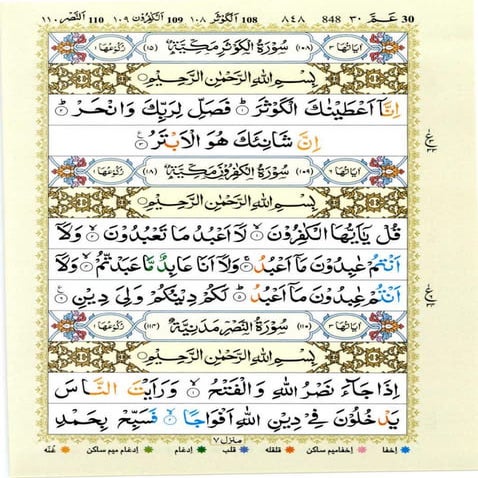 30 عـمّ ٣٠ 848 ٨٤٨ 108 الكوثر ١٠٨ 109 الكفرون ١٠٩ 110 النصر ١١٠
اٰيَاتُهَا ٣ (١٠٨) سُوْرَةُ الْكَوْثَرِ مَكِّيَّةٌ (١٥) رُكُوْعُهَا ١
بِسْمِ اللّٰهِ الرَّحْمٰنِ الرَّحِيْمِ
اِنَّاۤ اَعْطَيْنٰكَ الْكَوْثَرَ ؕ﴿۱﴾ فَصَلِّ لِرَبِّكَ وَانْحَرْ ؕ﴿۲﴾
اِنَّ شَانِئَكَ هُوَ الْاَبْتَرُ ﴿۳﴾
اٰيَاتُهَا ٦ (١٠٩) سُوْرَةُ الْكٰفِرُوْنَ مَكِّيَّةٌ (١٨) رُكُوْعُهَا ١
بِسْمِ اللّٰهِ الرَّحْمٰنِ الرَّحِيْمِ
قُلْ يٰۤاَيُّهَا الْكٰفِرُوْنَ ﴿۱﴾ لَاۤ اَعْبُدُ مَا تَعْبُدُوْنَ ﴿۲﴾ وَلَاۤ
اَنْتُمْ عٰبِدُوْنَ مَاۤ اَعْبُدُ ﴿۳﴾ وَلَاۤ اَنَا عَابِدٌ مَّا عَبَدْتُّمْ ﴿۴﴾ وَلَاۤ
اَنْتُمْ عٰبِدُوْنَ مَاۤ اَعْبُدُ ﴿۵﴾ لَكُمْ دِيْنُكُمْ وَلِيَ دِيْنِ ﴿۶﴾
اٰيَاتُهَا ٣ (١١٠) سُوْرَةُ النَّصْرِ مَدَنِيَّةٌ (١١٤) رُكُوْعُهَا ١
بِسْمِ اللّٰهِ الرَّحْمٰنِ الرَّحِيْمِ
اِذَا جَآءَ نَصْرُ اللّٰهِ وَالْفَتْحُ ﴿۱﴾ وَرَاَيْتَ النَّاسَ
يَدْخُلُوْنَ فِيْ دِيْنِ اللّٰهِ اَفْوَاجًا ﴿۲﴾ فَسَبِّحْ بِحَمْدِ
منزل ٧
اخفا اخفا میم ساکن قلقلہ قلب ادغام ادغام میم ساکن غنّہ